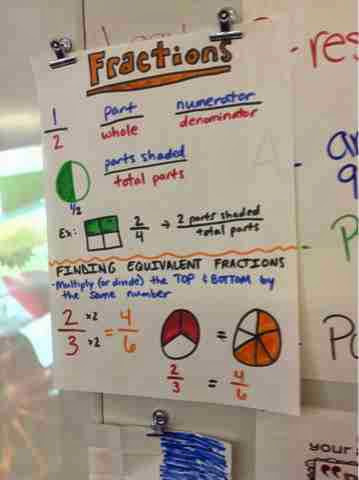 Fractions
1/2 part/whole numerator/denominator
parts shaded/total parts
1/2
Ex: 2/4 → 2 parts shaded/total parts
FINDING EQUIVALENT FRACTIONS
- Multiply (or divide) the TOP & BOTTOM by
the same number
2/3 ×2/×2 = 4/6
=
2/3 = 4/6
your